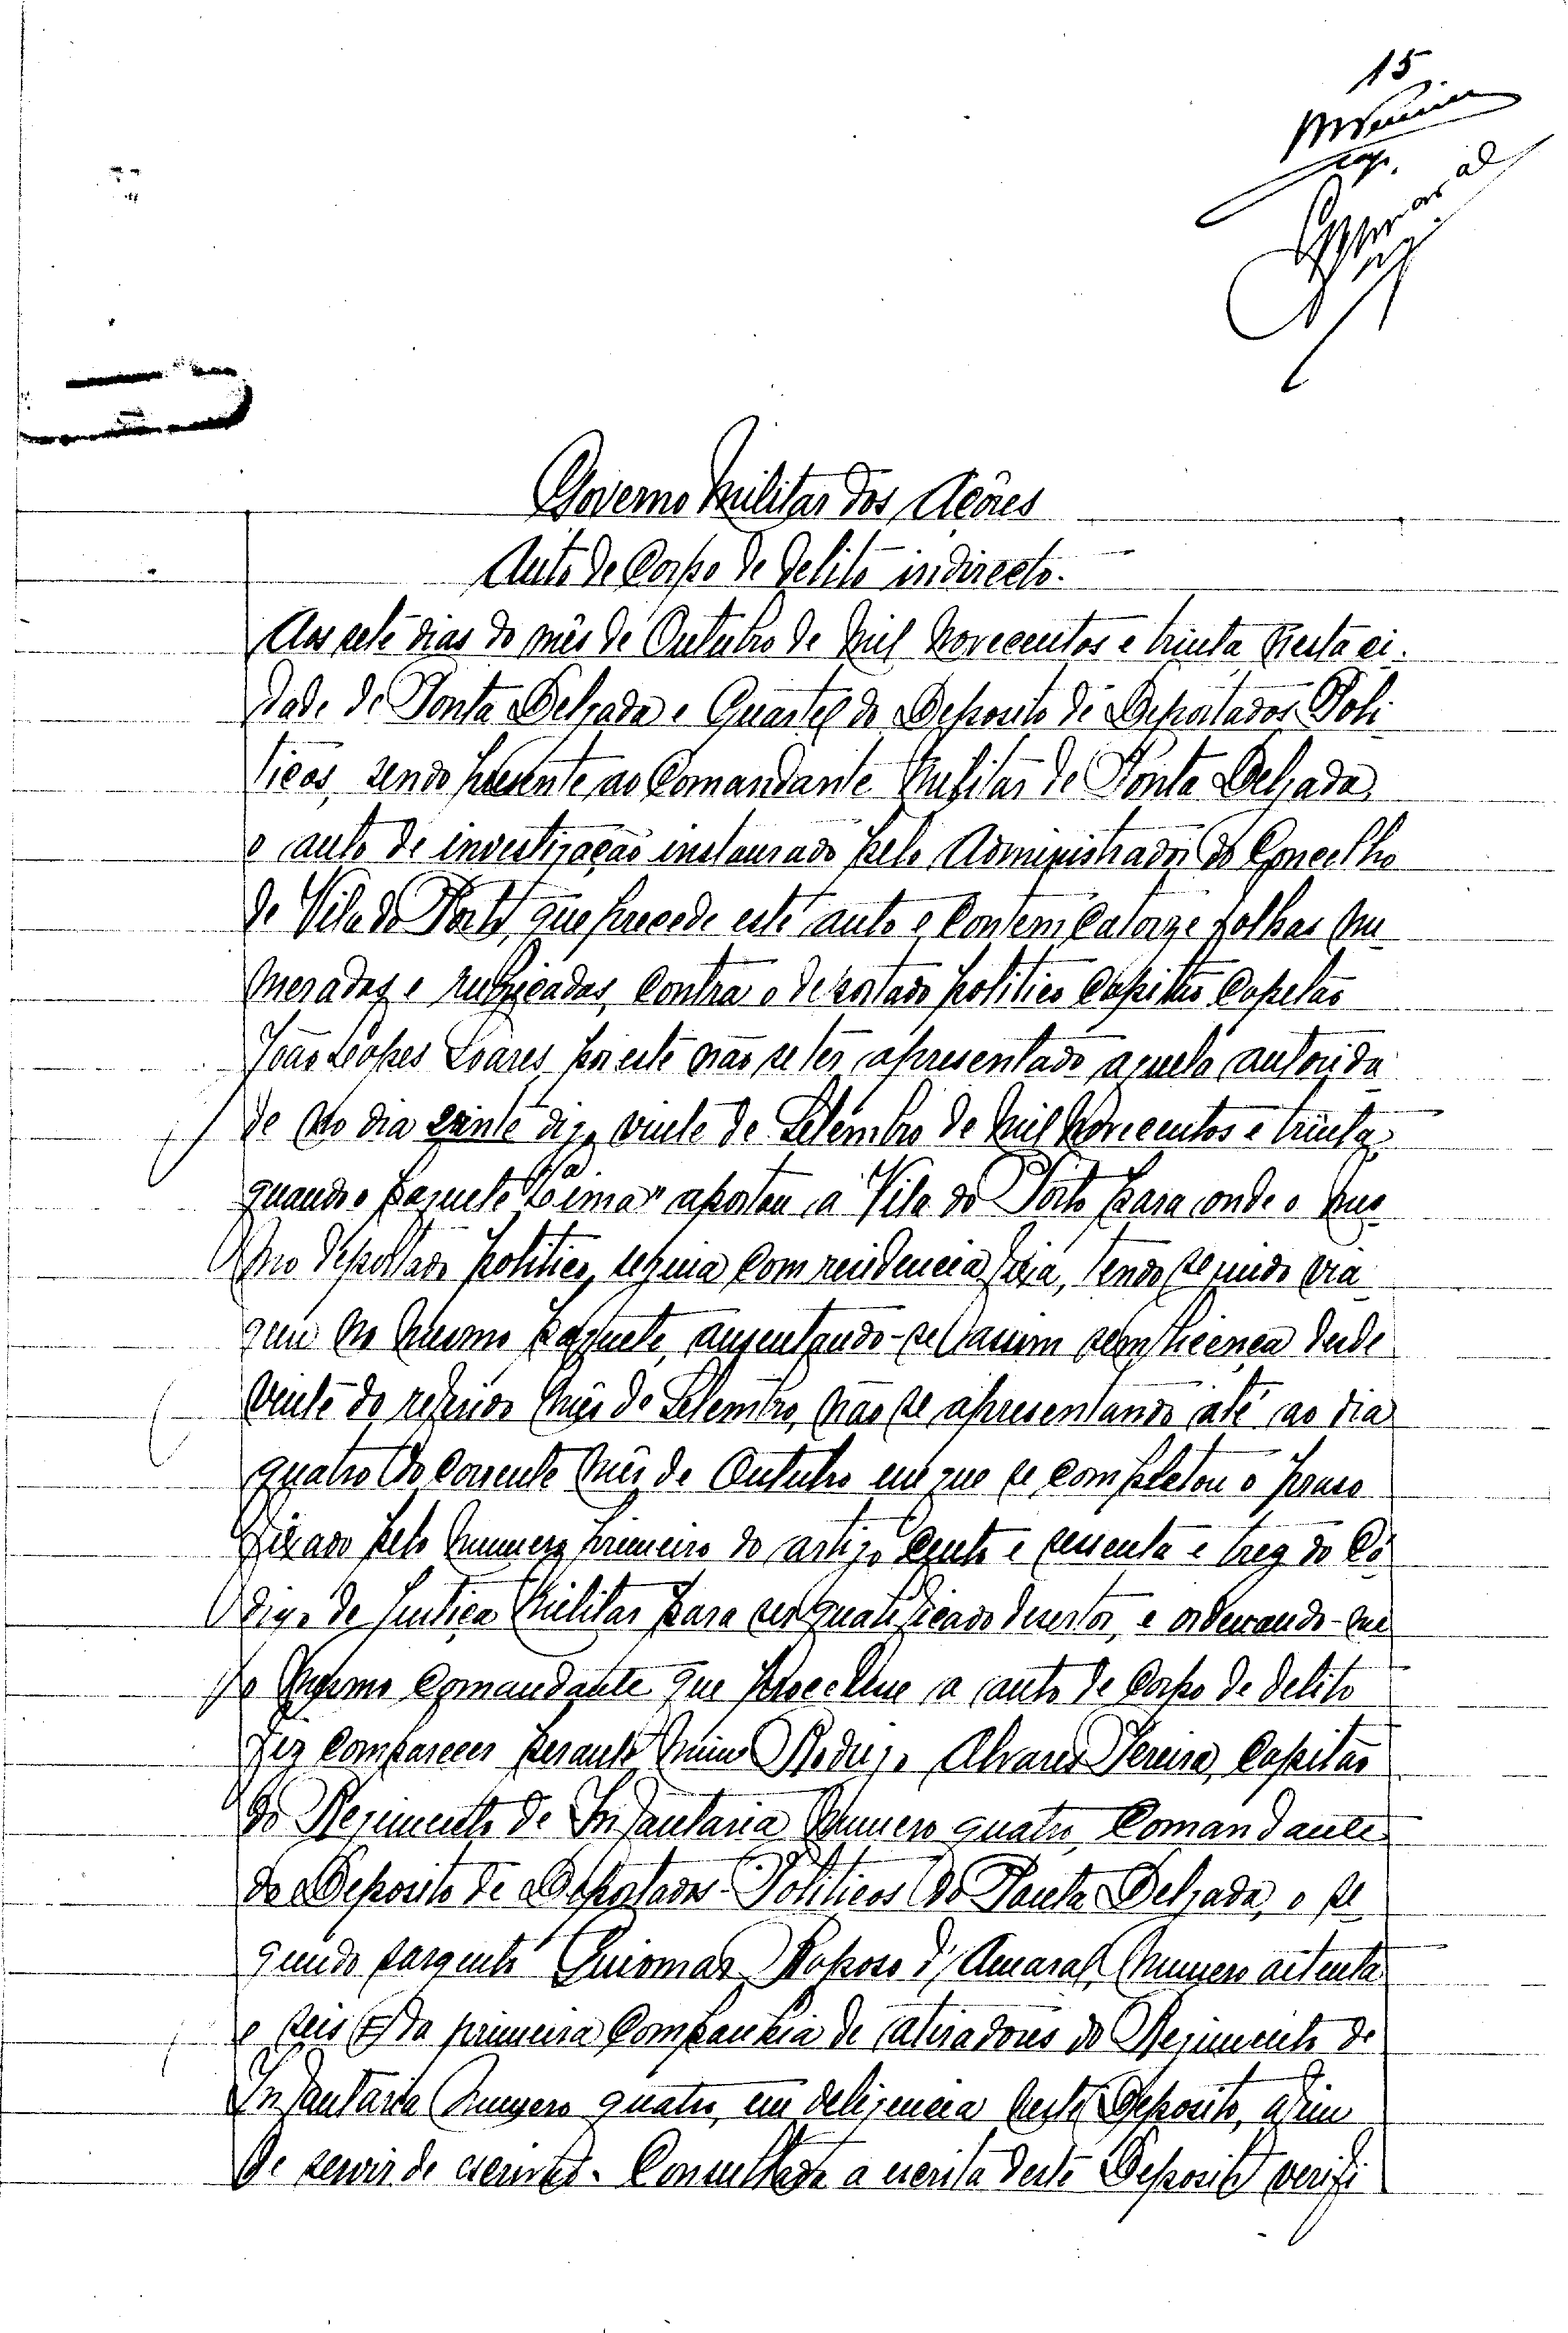 15
Governo Militar dos Açôres
Auto de Corpo de delito indirecto.
Aos sete dias do mês de Outubro de mil novecentos e trinta nesta ci-
dade de Ponta Delgada e Quartel do Deposito de Deportados Poli-
ticos, sendo presente ao Comandante Militar de Ponta Delgada
o auto de investigação instaurado pelo Administrador do Concelho
de Vila do Porto, que precede este auto e contem catorze folhas nu
meradas e rubricadas, contra o deportado politico Capitão Capelão
João Lopes Soares por este não se ter apresentado aquela autorida
de no dia vinte digo vinte de Setembro de mil novecentos e trinta
quando o paquete "Lima" aportou a Vila do Porto para onde o mes
mo deportado politico, seguia com residencia fixa, tendo seguido via
gem no mesmo paquete, ausentando-se assim sem licença desde
vinte do referido mês de Setembro, não se apresentando até ao dia
quatro do corrente mês de Outubro em que se completou o praso
fixado pelo numero primeiro do artigo cento e sessenta e trez do Có
digo de Justiça Militar para ser qualificado desertor, e ordenando-me
o mesmo Comandante que procedesse a auto de Corpo de delito
fiz comparecer perante mim Rodrigo Alvares Pereira, Capitão
do Regimento de Infantaria numero quatro, Comandante
do Deposito de Deportados Politicos de Ponta Delgada, o se
gundo sargento Guiomar Raposo d'Amaral, numero oitenta
e seis da primeira Companhia de atiradores do Regimento de
Infantaria numero quatro, em deligencia neste Deposito, afim
de servir de escrivão. Consultada a escrita deste Deposito verifi